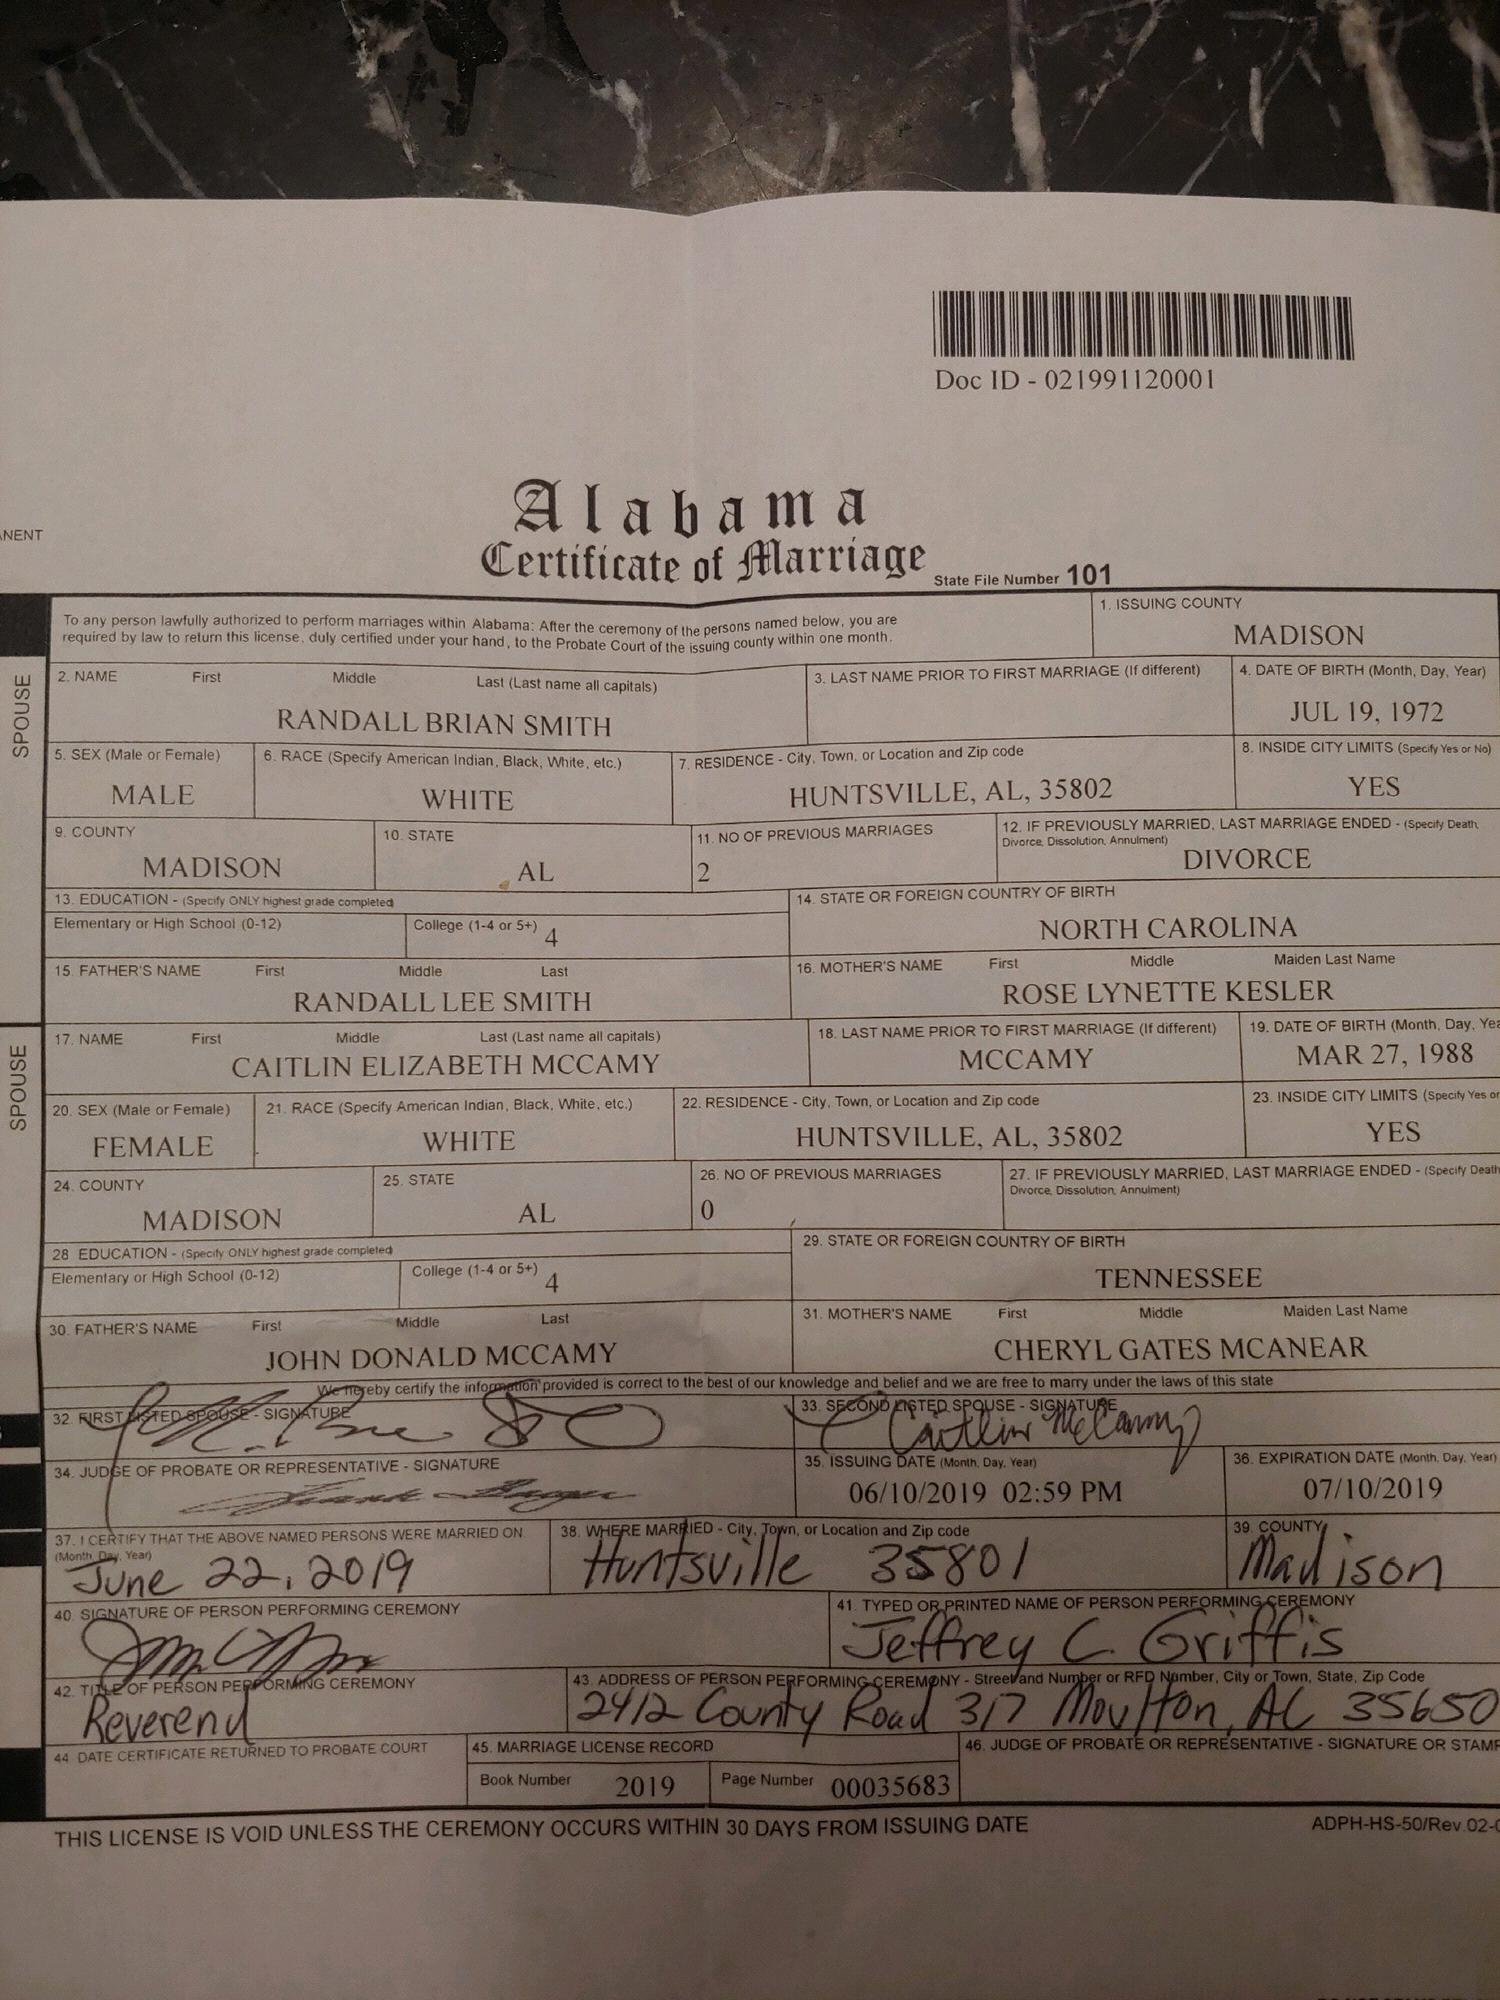 Doc ID - 021991120001
Alabama
Certificate of Marriage
State File Number 101
ANENT
To any person lawfully authorized to perform marriages within Alabama: After the ceremony of the persons named below, you are
required by law to return this license, duly certified under your hand, to the Probate Court of the issuing county within one month.
1. ISSUING COUNTY
MADISON
SPOUSE
2. NAME First Middle Last (Last name all capitals)
RANDALL BRIAN SMITH
3. LAST NAME PRIOR TO FIRST MARRIAGE (If different)
4. DATE OF BIRTH (Month, Day, Year)
JUL 19, 1972
5. SEX (Male or Female)
MALE
6. RACE (Specify American Indian, Black, White, etc.)
WHITE
7. RESIDENCE - City, Town, or Location and Zip code
HUNTSVILLE, AL, 35802
8. INSIDE CITY LIMITS (Specify Yes or No)
YES
9. COUNTY
MADISON
10. STATE
AL
11. NO OF PREVIOUS MARRIAGES
2
12. IF PREVIOUSLY MARRIED, LAST MARRIAGE ENDED - (Specify Death,
Divorce, Dissolution, Annulment)
DIVORCE
13. EDUCATION - (Specify ONLY highest grade completed)
Elementary or High School (0-12)
College (1-4 or 5+) 4
14. STATE OR FOREIGN COUNTRY OF BIRTH
NORTH CAROLINA
15. FATHER'S NAME First Middle Last
RANDALL LEE SMITH
16. MOTHER'S NAME First Middle Maiden Last Name
ROSE LYNETTE KESLER
SPOUSE
17. NAME First Middle Last (Last name all capitals)
CAITLIN ELIZABETH MCCAMY
18. LAST NAME PRIOR TO FIRST MARRIAGE (If different)
MCCAMY
19. DATE OF BIRTH (Month, Day, Yea
MAR 27, 1988
20. SEX (Male or Female)
FEMALE
21. RACE (Specify American Indian, Black, White, etc.)
WHITE
22. RESIDENCE - City, Town, or Location and Zip code
HUNTSVILLE, AL, 35802
23. INSIDE CITY LIMITS (Specify Yes or
YES
24. COUNTY
MADISON
25. STATE
AL
26. NO OF PREVIOUS MARRIAGES
0
27. IF PREVIOUSLY MARRIED, LAST MARRIAGE ENDED - (Specify Death
Divorce, Dissolution, Annulment)
28 EDUCATION - (Specify ONLY highest grade completed)
Elementary or High School (0-12)
College (1-4 or 5+) 4
29. STATE OR FOREIGN COUNTRY OF BIRTH
TENNESSEE
30. FATHER'S NAME First Middle Last
JOHN DONALD MCCAMY
31. MOTHER'S NAME First Middle Maiden Last Name
CHERYL GATES MCANEAR
We hereby certify the information provided is correct to the best of our knowledge and belief and we are free to marry under the laws of this state
32. FIRST LISTED SPOUSE - SIGNATURE
33. SECOND LISTED SPOUSE - SIGNATURE
Caitlin McCamy
34. JUDGE OF PROBATE OR REPRESENTATIVE - SIGNATURE
35. ISSUING DATE (Month, Day, Year)
06/10/2019 02:59 PM
36. EXPIRATION DATE (Month, Day, Year)
07/10/2019
37. I CERTIFY THAT THE ABOVE NAMED PERSONS WERE MARRIED ON
(Month, Day, Year)
June 22, 2019
38. WHERE MARRIED - City, Town, or Location and Zip code
Huntsville 35801
39. COUNTY
Madison
40. SIGNATURE OF PERSON PERFORMING CEREMONY
41. TYPED OR PRINTED NAME OF PERSON PERFORMING CEREMONY
Jeffrey C. Griffis
42. TITLE OF PERSON PERFORMING CEREMONY
Reverend
43. ADDRESS OF PERSON PERFORMING CEREMONY - Street and Number or RFD Number, City or Town, State, Zip Code
2412 County Road 317 Moulton, AL 35650
44 DATE CERTIFICATE RETURNED TO PROBATE COURT
45. MARRIAGE LICENSE RECORD
Book Number 2019
Page Number 00035683
46. JUDGE OF PROBATE OR REPRESENTATIVE - SIGNATURE OR STAMP
THIS LICENSE IS VOID UNLESS THE CEREMONY OCCURS WITHIN 30 DAYS FROM ISSUING DATE
ADPH-HS-50/Rev.02-0